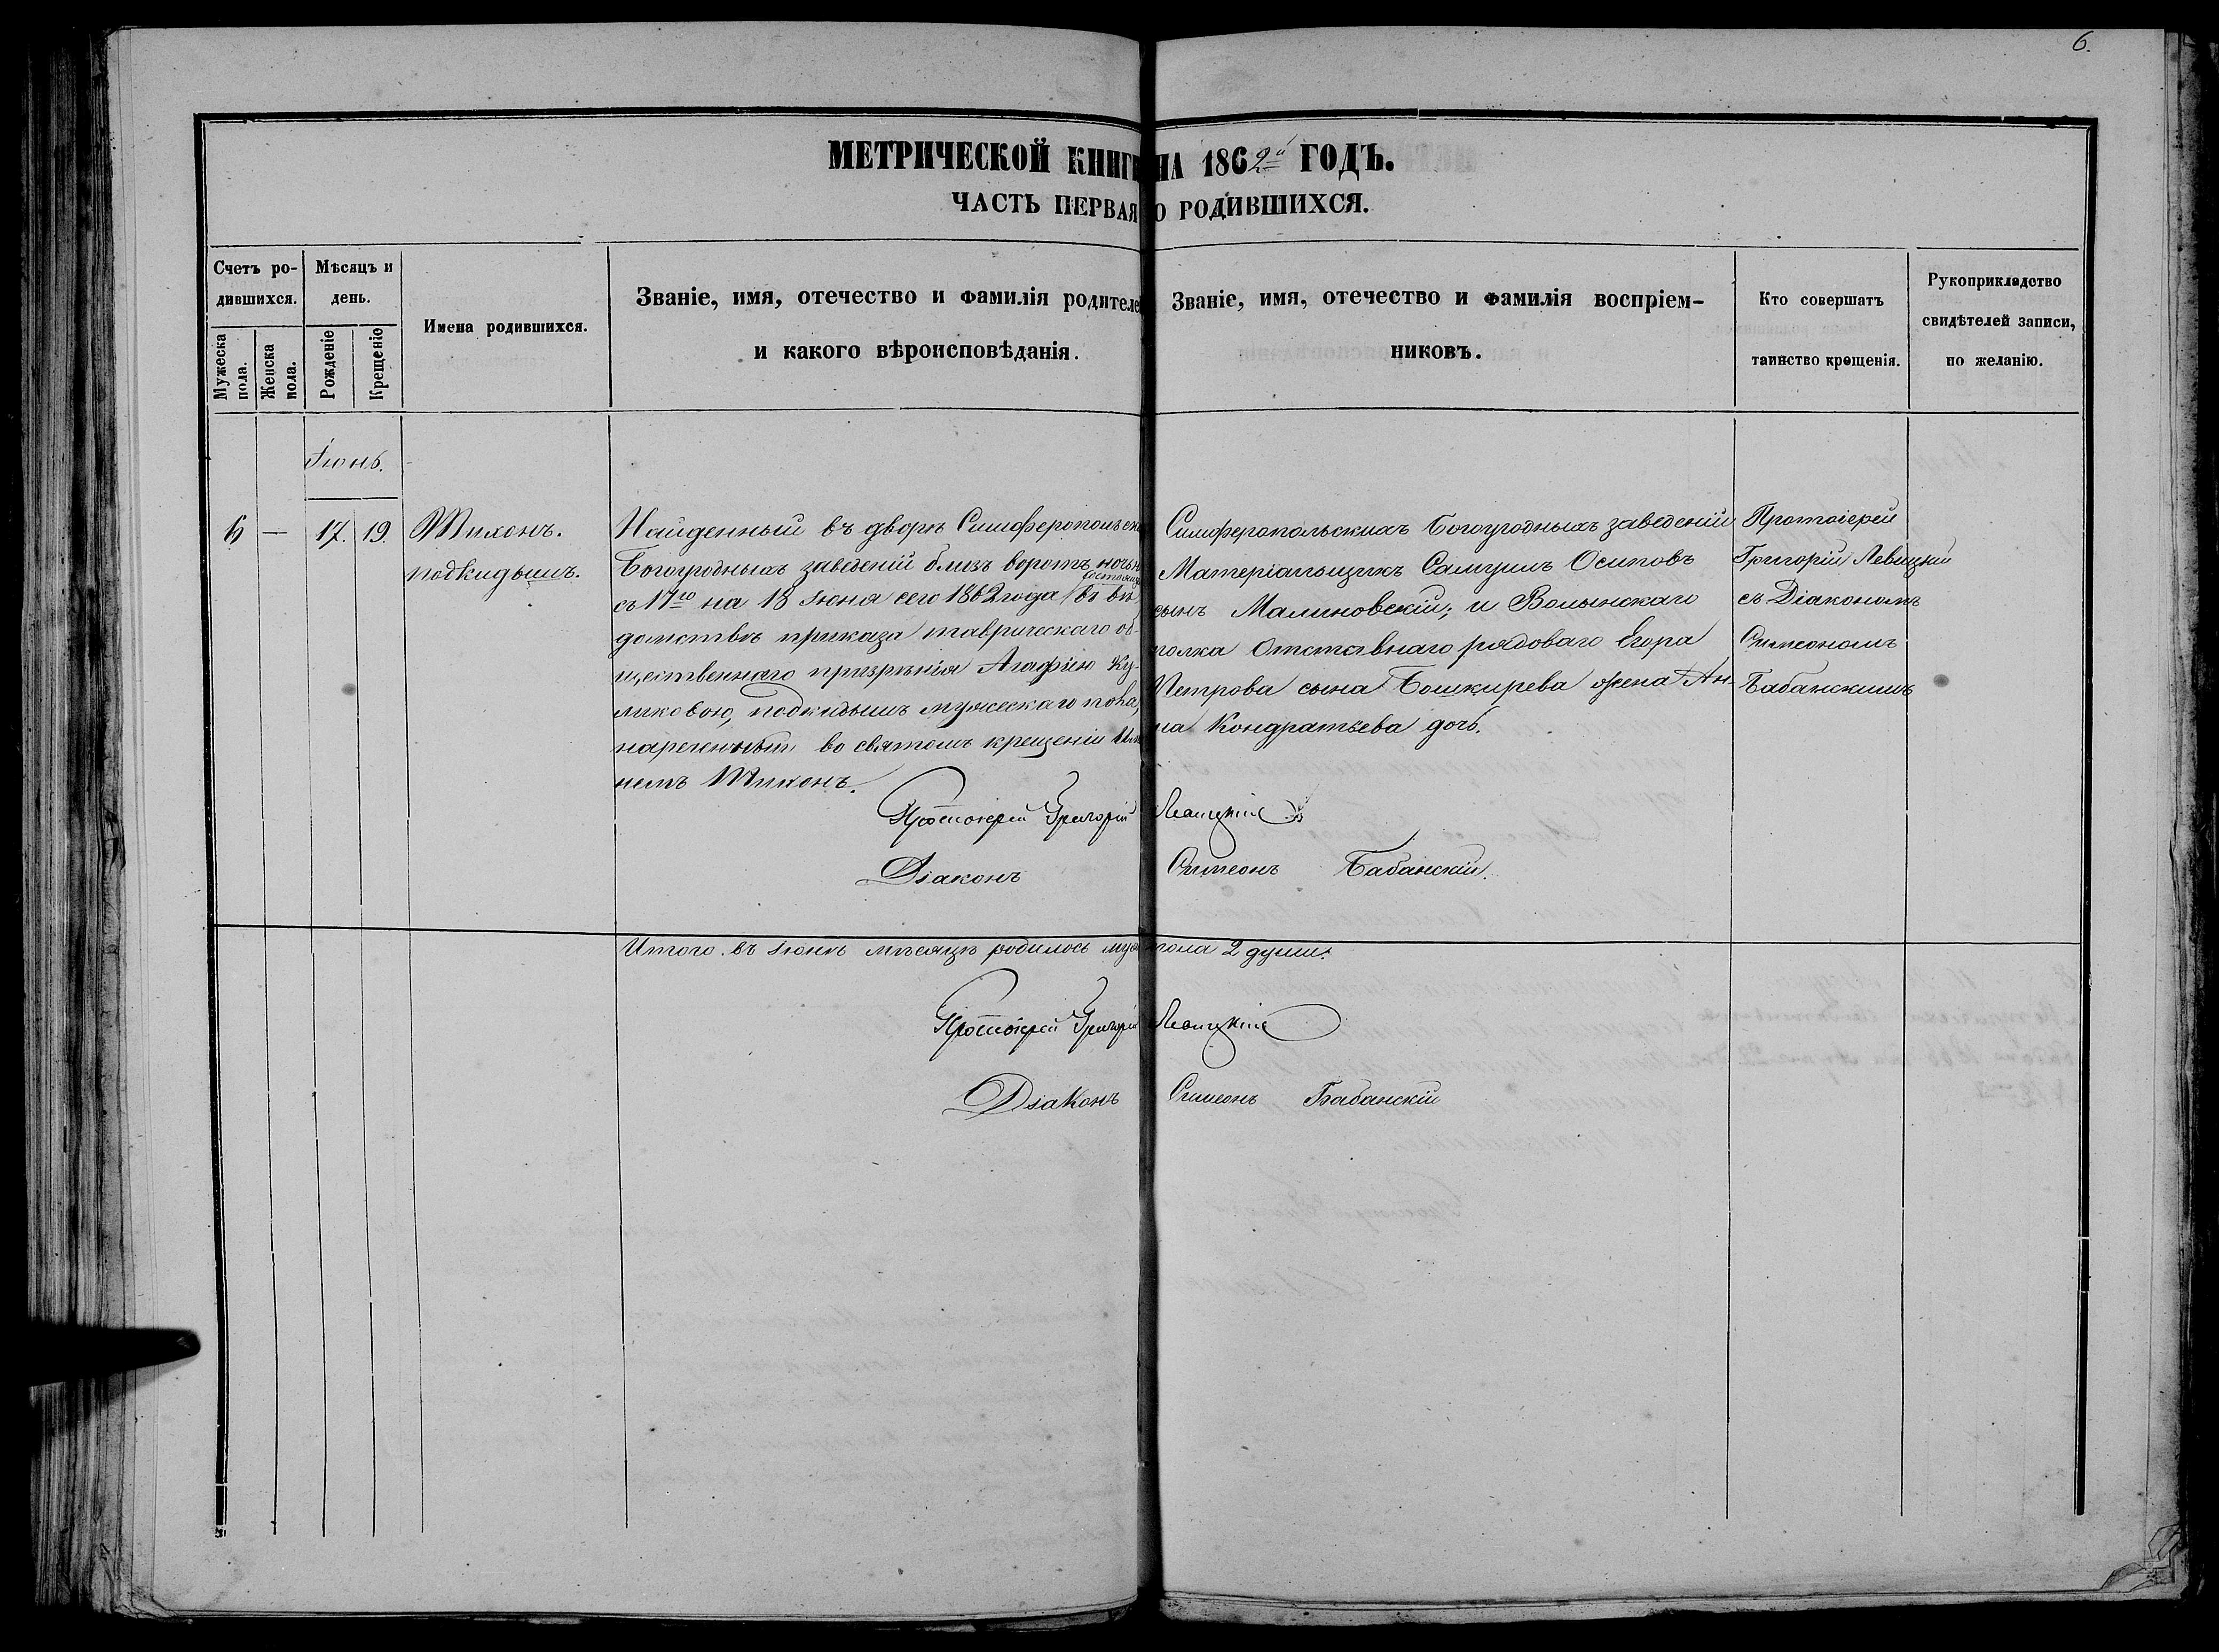 6.
МЕТРИЧЕСКОЙ КНИГИ НА 1862й ГОДЪ.
ЧАСТЬ ПЕРВАЯ О РОДИВШИХСЯ.
Счетъ ро-
дившихся.
Мужеска пола.
Женска пола.
Мѣсяцъ и
день.
Рожденіе
Крещеніе
Имена родившихся.
Званіе, имя, отечество и фамилія родителей
и какого вѣроисповѣданія.
Званіе, имя, отечество и фамилія воспріем-
никовъ.
Кто совершатъ
таинство крещенія.
Рукоприкладство
свидѣтелей записи,
по желанію.
Іюнь.
6 — 17. 19.
Тихонъ.
подкидышъ.
Найденный въ дворѣ Симферопольск
Богоугодныхъ заведеній близъ воротъ ночью
состоящ
съ 17го на 18 Іюня сего 1862 года въ вѣ
домствѣ приказа таврическаго об-
щественнаго призрѣнія Агафіею Ку-
ликовою, подкидышъ мужескаго пола,
нареченный во святомъ крещеніи Име
немъ Тихонъ.
Симферопольскихъ Богоугодныхъ заведеній
Матеріальщикъ Самуилъ Осиповъ
сынъ Малиновскій; и Волынскаго
полка Отставнаго рядоваго Егора
Петрова сына Бошкирева жена Ан-
на Кондратьева дочь.
Протоіерей
Григорій Левицкій
съ Діакономъ
Симеономъ
Бабанскимъ
Протоіерей Григорій Левицкій
Діаконъ Симеонъ Бабанскій.
Итого въ Іюнѣ мѣсяцѣ родилось муж пола 2 души.
Протоіерей Григорій Левицкій
Діаконъ Симеонъ Бабанскій